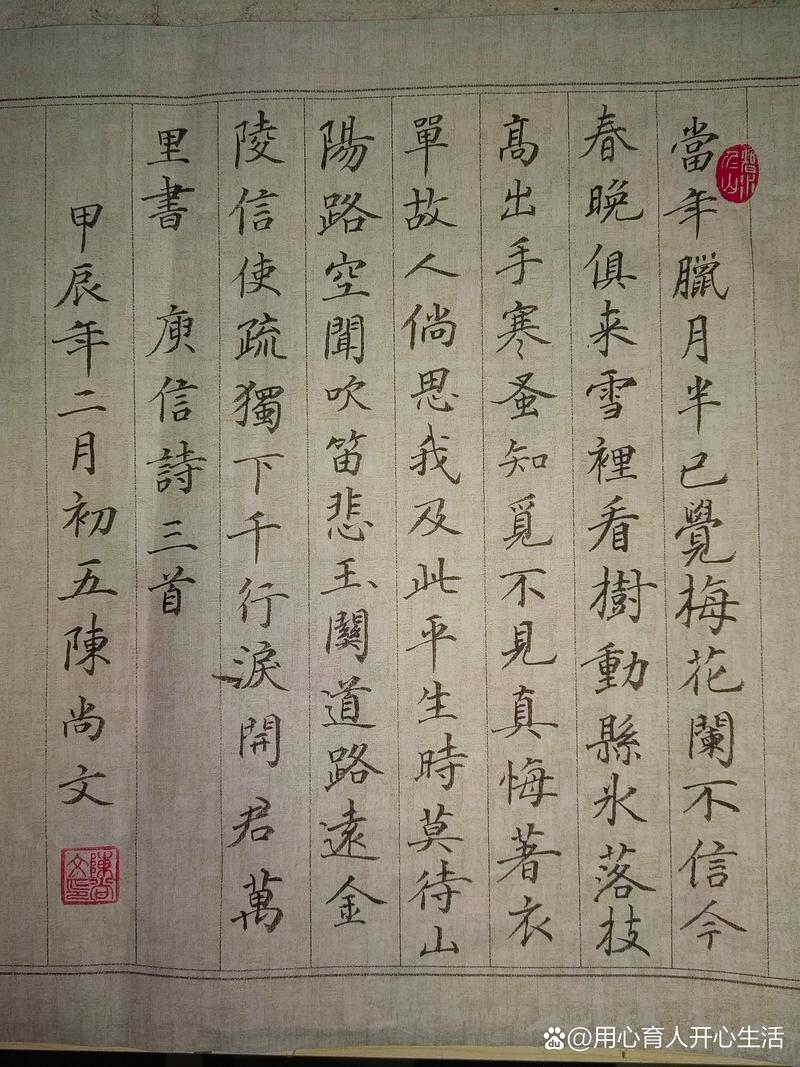 當年臘月半已覺梅花闌不信今
春晚俱来雪裡看樹動縣氷落枝
高出手寒蚤知覓不見真悔著衣
單故人倘思我及此平生時莫待山
陽路空聞吹笛悲玉関道路遠金
陵信使疏獨下千行淚開君萬
里書 庾信詩三首
甲辰年二月初五陳尚文
陳尚文印
@用心育人开心生活